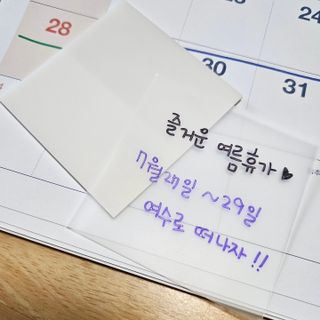 28
30
31
즐거운 여름휴가 ♥
7월27일 ~29일
여수로 떠나자!!